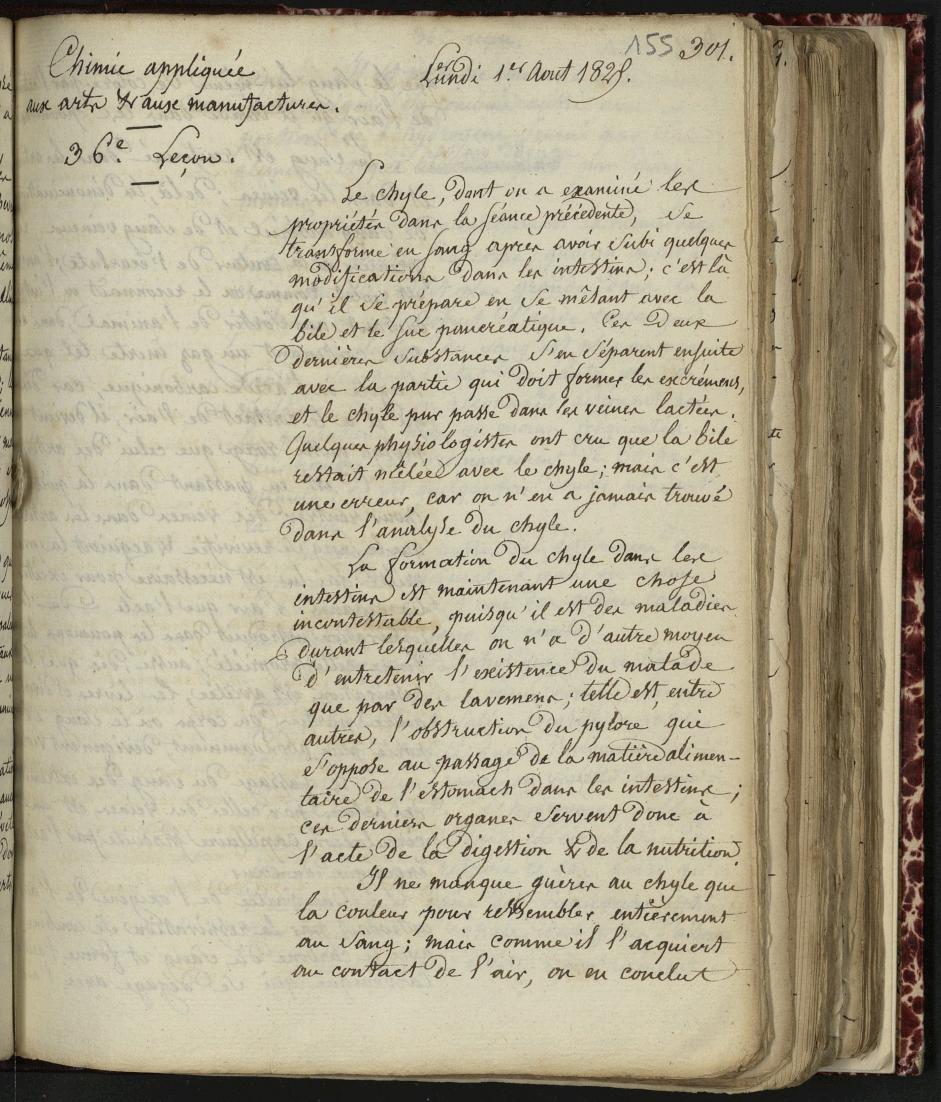 155 301.
Chimie appliquée
aux arts & aux manufactures.
Lundi 1.er Aout 1825.
36.e Leçon.
Le chyle, dont on a examiné les
propriétés dans la séance précédente, se
transforme en sang après avoir subi quelques
modifications dans les intestins; c'est là
qu'il se prépare en se mêlant avec la
bile et le suc pancréatique. Ces deux
dernières substances s'en séparent ensuite
avec la partie qui doit former les excrémens,
et le chyle pur passe dans les veines lactées.
Quelques physiologistes ont cru que la bile
restait mêlée avec le chyle; mais c'est
une erreur, car on n'en a jamais trouvé
dans l'analyse du chyle.
La formation du chyle dans les
intestins est maintenant une chose
incontestable, puisqu'il est des maladies
durant lesquelles on n'a d'autre moyen
d'entretenir l'existence du malade
que par des lavemens; telle est, entre
autres, l'obstruction du pylore qui
s'oppose au passage de la matière alimen-
taire de l'estomach dans les intestins;
ces derniers organes servent donc à
l'acte de la digestion & de la nutrition.
Il ne manque guères au chyle que
la couleur pour ressembler entièrement
au sang; mais comme il l'acquiert
au contact de l'air, on en conclut